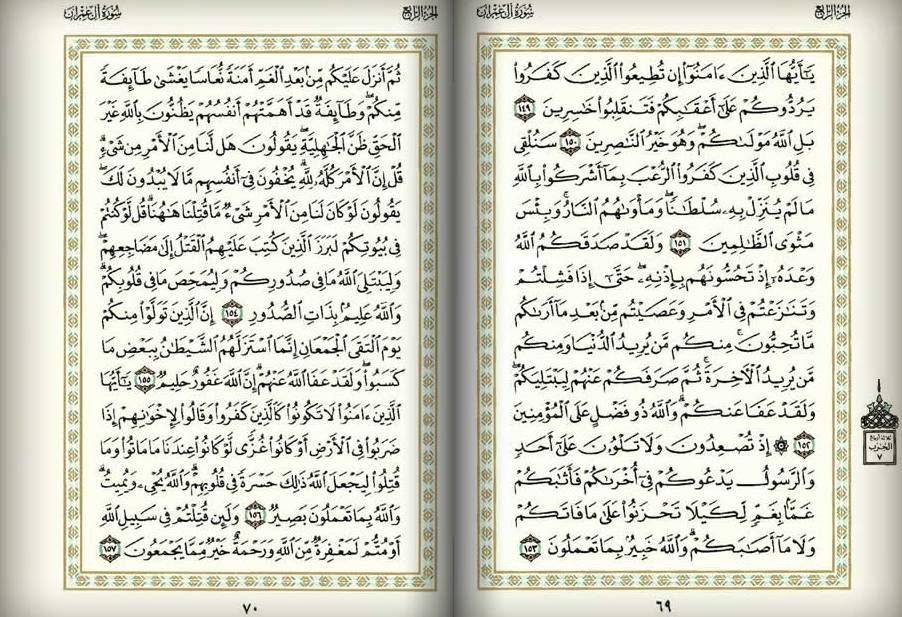 الجزء الرابع
سورة آل عمران
يَٰٓأَيُّهَا ٱلَّذِينَ ءَامَنُوٓا۟ إِن تُطِيعُوا۟ ٱلَّذِينَ كَفَرُوا۟
يَرُدُّوكُمْ عَلَىٰٓ أَعْقَٰبِكُمْ فَتَنقَلِبُوا۟ خَٰسِرِينَ ١٤٩
بَلِ ٱللَّهُ مَوْلَىٰكُمْ ۖ وَهُوَ خَيْرُ ٱلنَّٰصِرِينَ ١٥٠ سَنُلْقِى
فِى قُلُوبِ ٱلَّذِينَ كَفَرُوا۟ ٱلرُّعْبَ بِمَآ أَشْرَكُوا۟ بِٱللَّهِ
مَا لَمْ يُنَزِّلْ بِهِۦ سُلْطَٰنًا ۖ وَمَأْوَىٰهُمُ ٱلنَّارُ ۚ وَبِئْسَ
مَثْوَى ٱلظَّٰلِمِينَ ١٥١ وَلَقَدْ صَدَقَكُمُ ٱللَّهُ
وَعْدَهُۥٓ إِذْ تَحُسُّونَهُم بِإِذْنِهِۦ ۖ حَتَّىٰٓ إِذَا فَشِلْتُمْ
وَتَنَٰزَعْتُمْ فِى ٱلْأَمْرِ وَعَصَيْتُم مِّنۢ بَعْدِ مَآ أَرَىٰكُم
مَّا تُحِبُّونَ ۚ مِنكُم مَّن يُرِيدُ ٱلدُّنْيَا وَمِنكُم
مَّن يُرِيدُ ٱلْءَاخِرَةَ ۚ ثُمَّ صَرَفَكُمْ عَنْهُمْ لِيَبْتَلِيَكُمْ ۖ
وَلَقَدْ عَفَا عَنكُمْ ۗ وَٱللَّهُ ذُو فَضْلٍ عَلَى ٱلْمُؤْمِنِينَ
١٥٢ ۞ إِذْ تُصْعِدُونَ وَلَا تَلْوُۥنَ عَلَىٰٓ أَحَدٍ
وَٱلرَّسُولُ يَدْعُوكُمْ فِىٓ أُخْرَىٰكُمْ فَأَثَٰبَكُمْ
غَمًّۢا بِغَمٍّ لِّكَيْلَا تَحْزَنُوا۟ عَلَىٰ مَا فَاتَكُمْ
وَلَا مَآ أَصَٰبَكُمْ ۗ وَٱللَّهُ خَبِيرٌۢ بِمَا تَعْمَلُونَ ١٥٣
ثلاثة أرباع
الحزب
٧
٦٩
الجزء الرابع
سورة آل عمران
ثُمَّ أَنزَلَ عَلَيْكُم مِّنۢ بَعْدِ ٱلْغَمِّ أَمَنَةً نُّعَاسًا يَغْشَىٰ طَآئِفَةً
مِّنكُمْ ۖ وَطَآئِفَةٌ قَدْ أَهَمَّتْهُمْ أَنفُسُهُمْ يَظُنُّونَ بِٱللَّهِ غَيْرَ
ٱلْحَقِّ ظَنَّ ٱلْجَٰهِلِيَّةِ ۖ يَقُولُونَ هَل لَّنَا مِنَ ٱلْأَمْرِ مِن شَىْءٍ ۗ
قُلْ إِنَّ ٱلْأَمْرَ كُلَّهُۥ لِلَّهِ ۗ يُخْفُونَ فِىٓ أَنفُسِهِم مَّا لَا يُبْدُونَ لَكَ ۖ
يَقُولُونَ لَوْ كَانَ لَنَا مِنَ ٱلْأَمْرِ شَىْءٌ مَّا قُتِلْنَا هَٰهُنَا ۗ قُل لَّوْ كُنتُمْ
فِى بُيُوتِكُمْ لَبَرَزَ ٱلَّذِينَ كُتِبَ عَلَيْهِمُ ٱلْقَتْلُ إِلَىٰ مَضَاجِعِهِمْ ۖ
وَلِيَبْتَلِىَ ٱللَّهُ مَا فِى صُدُورِكُمْ وَلِيُمَحِّصَ مَا فِى قُلُوبِكُمْ ۗ
وَٱللَّهُ عَلِيمٌۢ بِذَاتِ ٱلصُّدُورِ ١٥٤ إِنَّ ٱلَّذِينَ تَوَلَّوْا۟ مِنكُمْ
يَوْمَ ٱلْتَقَى ٱلْجَمْعَانِ إِنَّمَا ٱسْتَزَلَّهُمُ ٱلشَّيْطَٰنُ بِبَعْضِ مَا
كَسَبُوا۟ ۖ وَلَقَدْ عَفَا ٱللَّهُ عَنْهُمْ ۗ إِنَّ ٱللَّهَ غَفُورٌ حَلِيمٌ ١٥٥ يَٰٓأَيُّهَا
ٱلَّذِينَ ءَامَنُوا۟ لَا تَكُونُوا۟ كَٱلَّذِينَ كَفَرُوا۟ وَقَالُوا۟ لِإِخْوَٰنِهِمْ إِذَا
ضَرَبُوا۟ فِى ٱلْأَرْضِ أَوْ كَانُوا۟ غُزًّى لَّوْ كَانُوا۟ عِندَنَا مَا مَاتُوا۟ وَمَا
قُتِلُوا۟ لِيَجْعَلَ ٱللَّهُ ذَٰلِكَ حَسْرَةً فِى قُلُوبِهِمْ ۗ وَٱللَّهُ يُحْىِۦ وَيُمِيتُ ۗ
وَٱللَّهُ بِمَا تَعْمَلُونَ بَصِيرٌ ١٥٦ وَلَئِن قُتِلْتُمْ فِى سَبِيلِ ٱللَّهِ
أَوْ مُتُّمْ لَمَغْفِرَةٌ مِّنَ ٱللَّهِ وَرَحْمَةٌ خَيْرٌ مِّمَّا يَجْمَعُونَ ١٥٧
٧٠